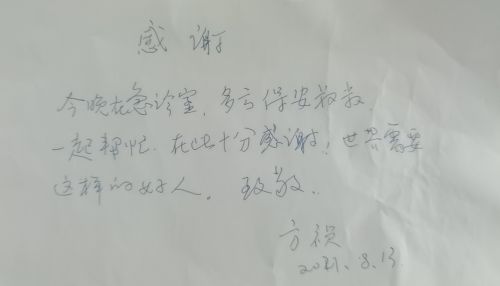 感谢
今晚在急诊室,多亏保安叔叔,
一起帮忙.在此十分感谢!世界需要
这样的好人。致敬..
方
2021.8.13.